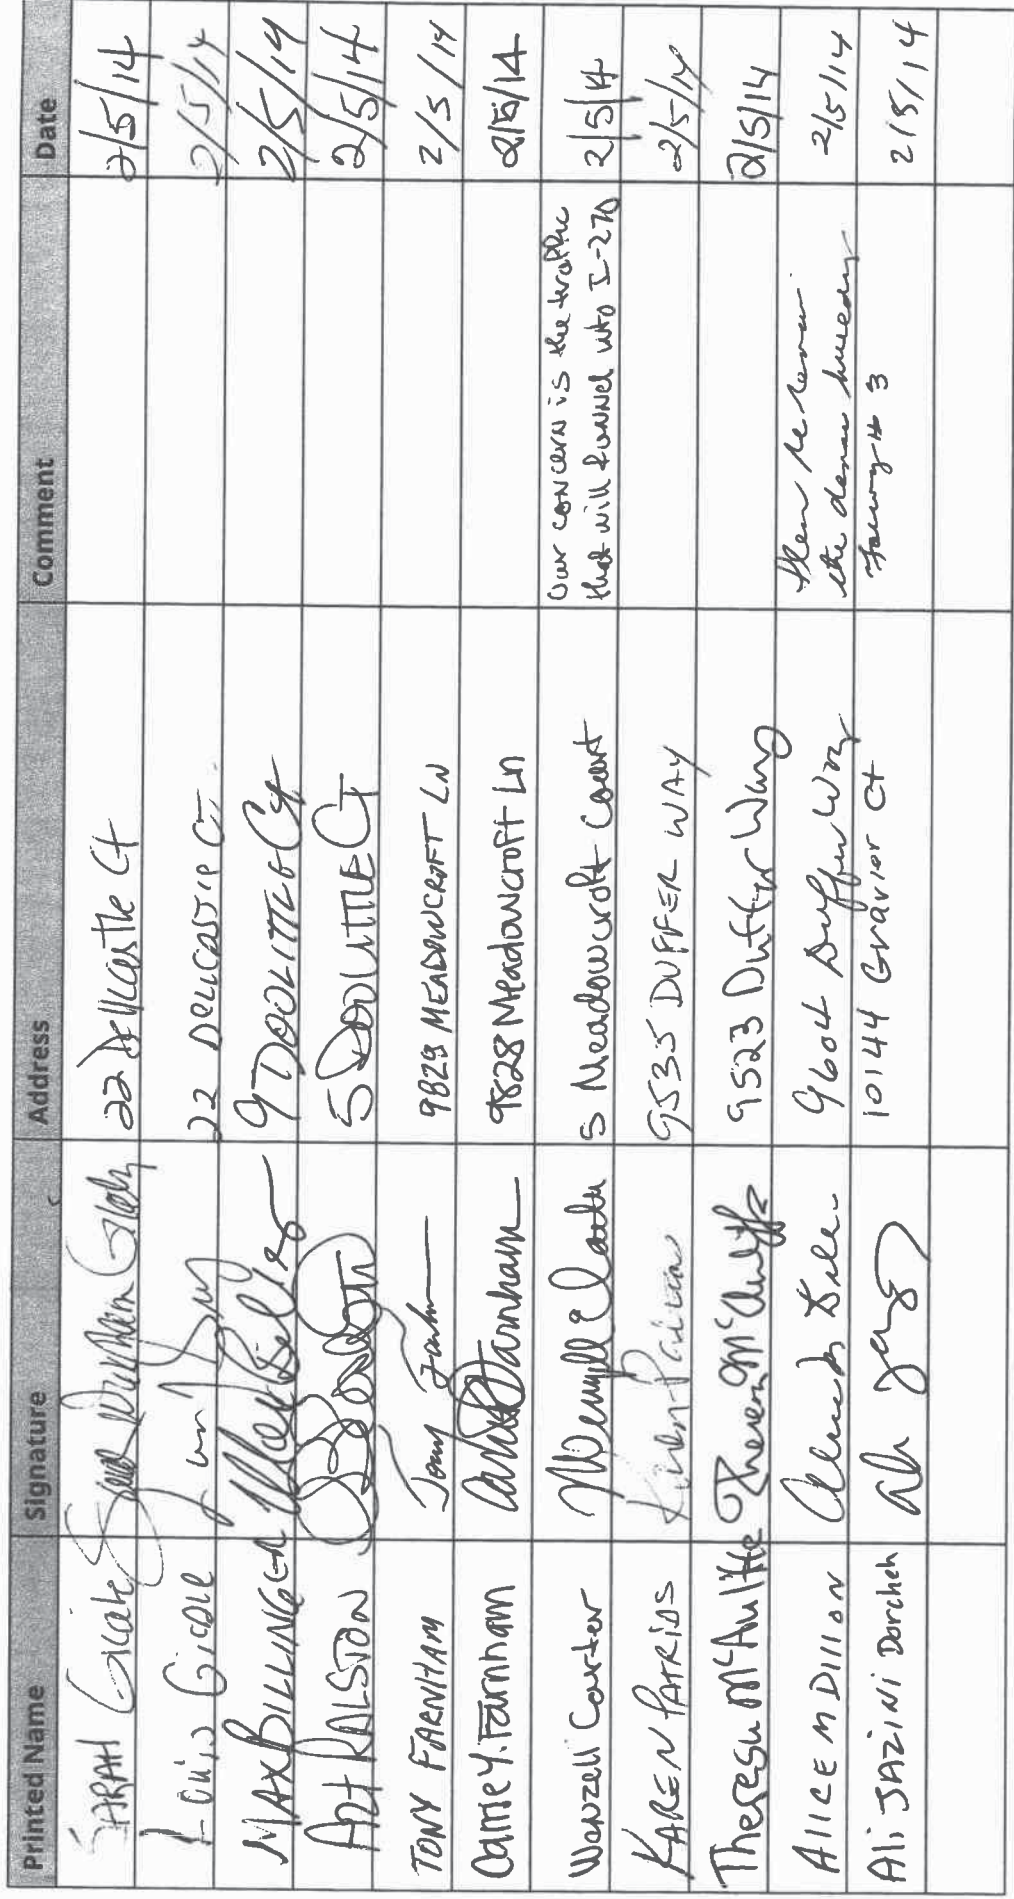 Printed Name Signature Address Comment Date
SARAH Gicale 22 Dellcastle Ct 2/5/14
Louis Gicale 22 DELLCASTLE CT. 2/5/14
MAX BILLINGER 9 DOOLITTLE Ct 2/5/14
Art RALSTON 5 DOOLITTLE CT 2/5/14
TONY FARNHAM Tony 9829 MEADOWCROFT LN 2/5/14
Carrie Y. Farnham 9828 Meadowcroft Ln 2/5/14
Wanzell Carter 5 Meadowcroft Court Our concern is the traffic 2/5/14
that will funnel into I-270
KAREN PATRIAS 9535 DUFFER WAY 2/5/14
Theresa McAuliffe Theresa McAuliffe 9523 Duffer Way 2/5/14
ALICE M Dillon 9604 Duffer Way 2/5/14
the
# 3
Ali JAZINI Dorcheh 10144 Gravier Ct 2/5/14